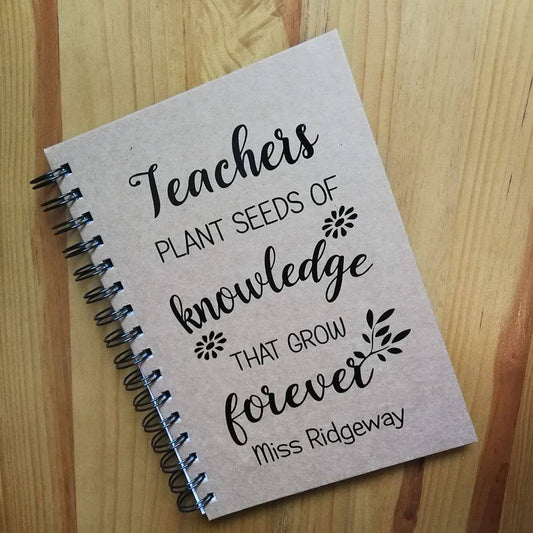 Teachers
PLANT SEEDS OF
knowledge
THAT GROW
forever
Miss Ridgeway